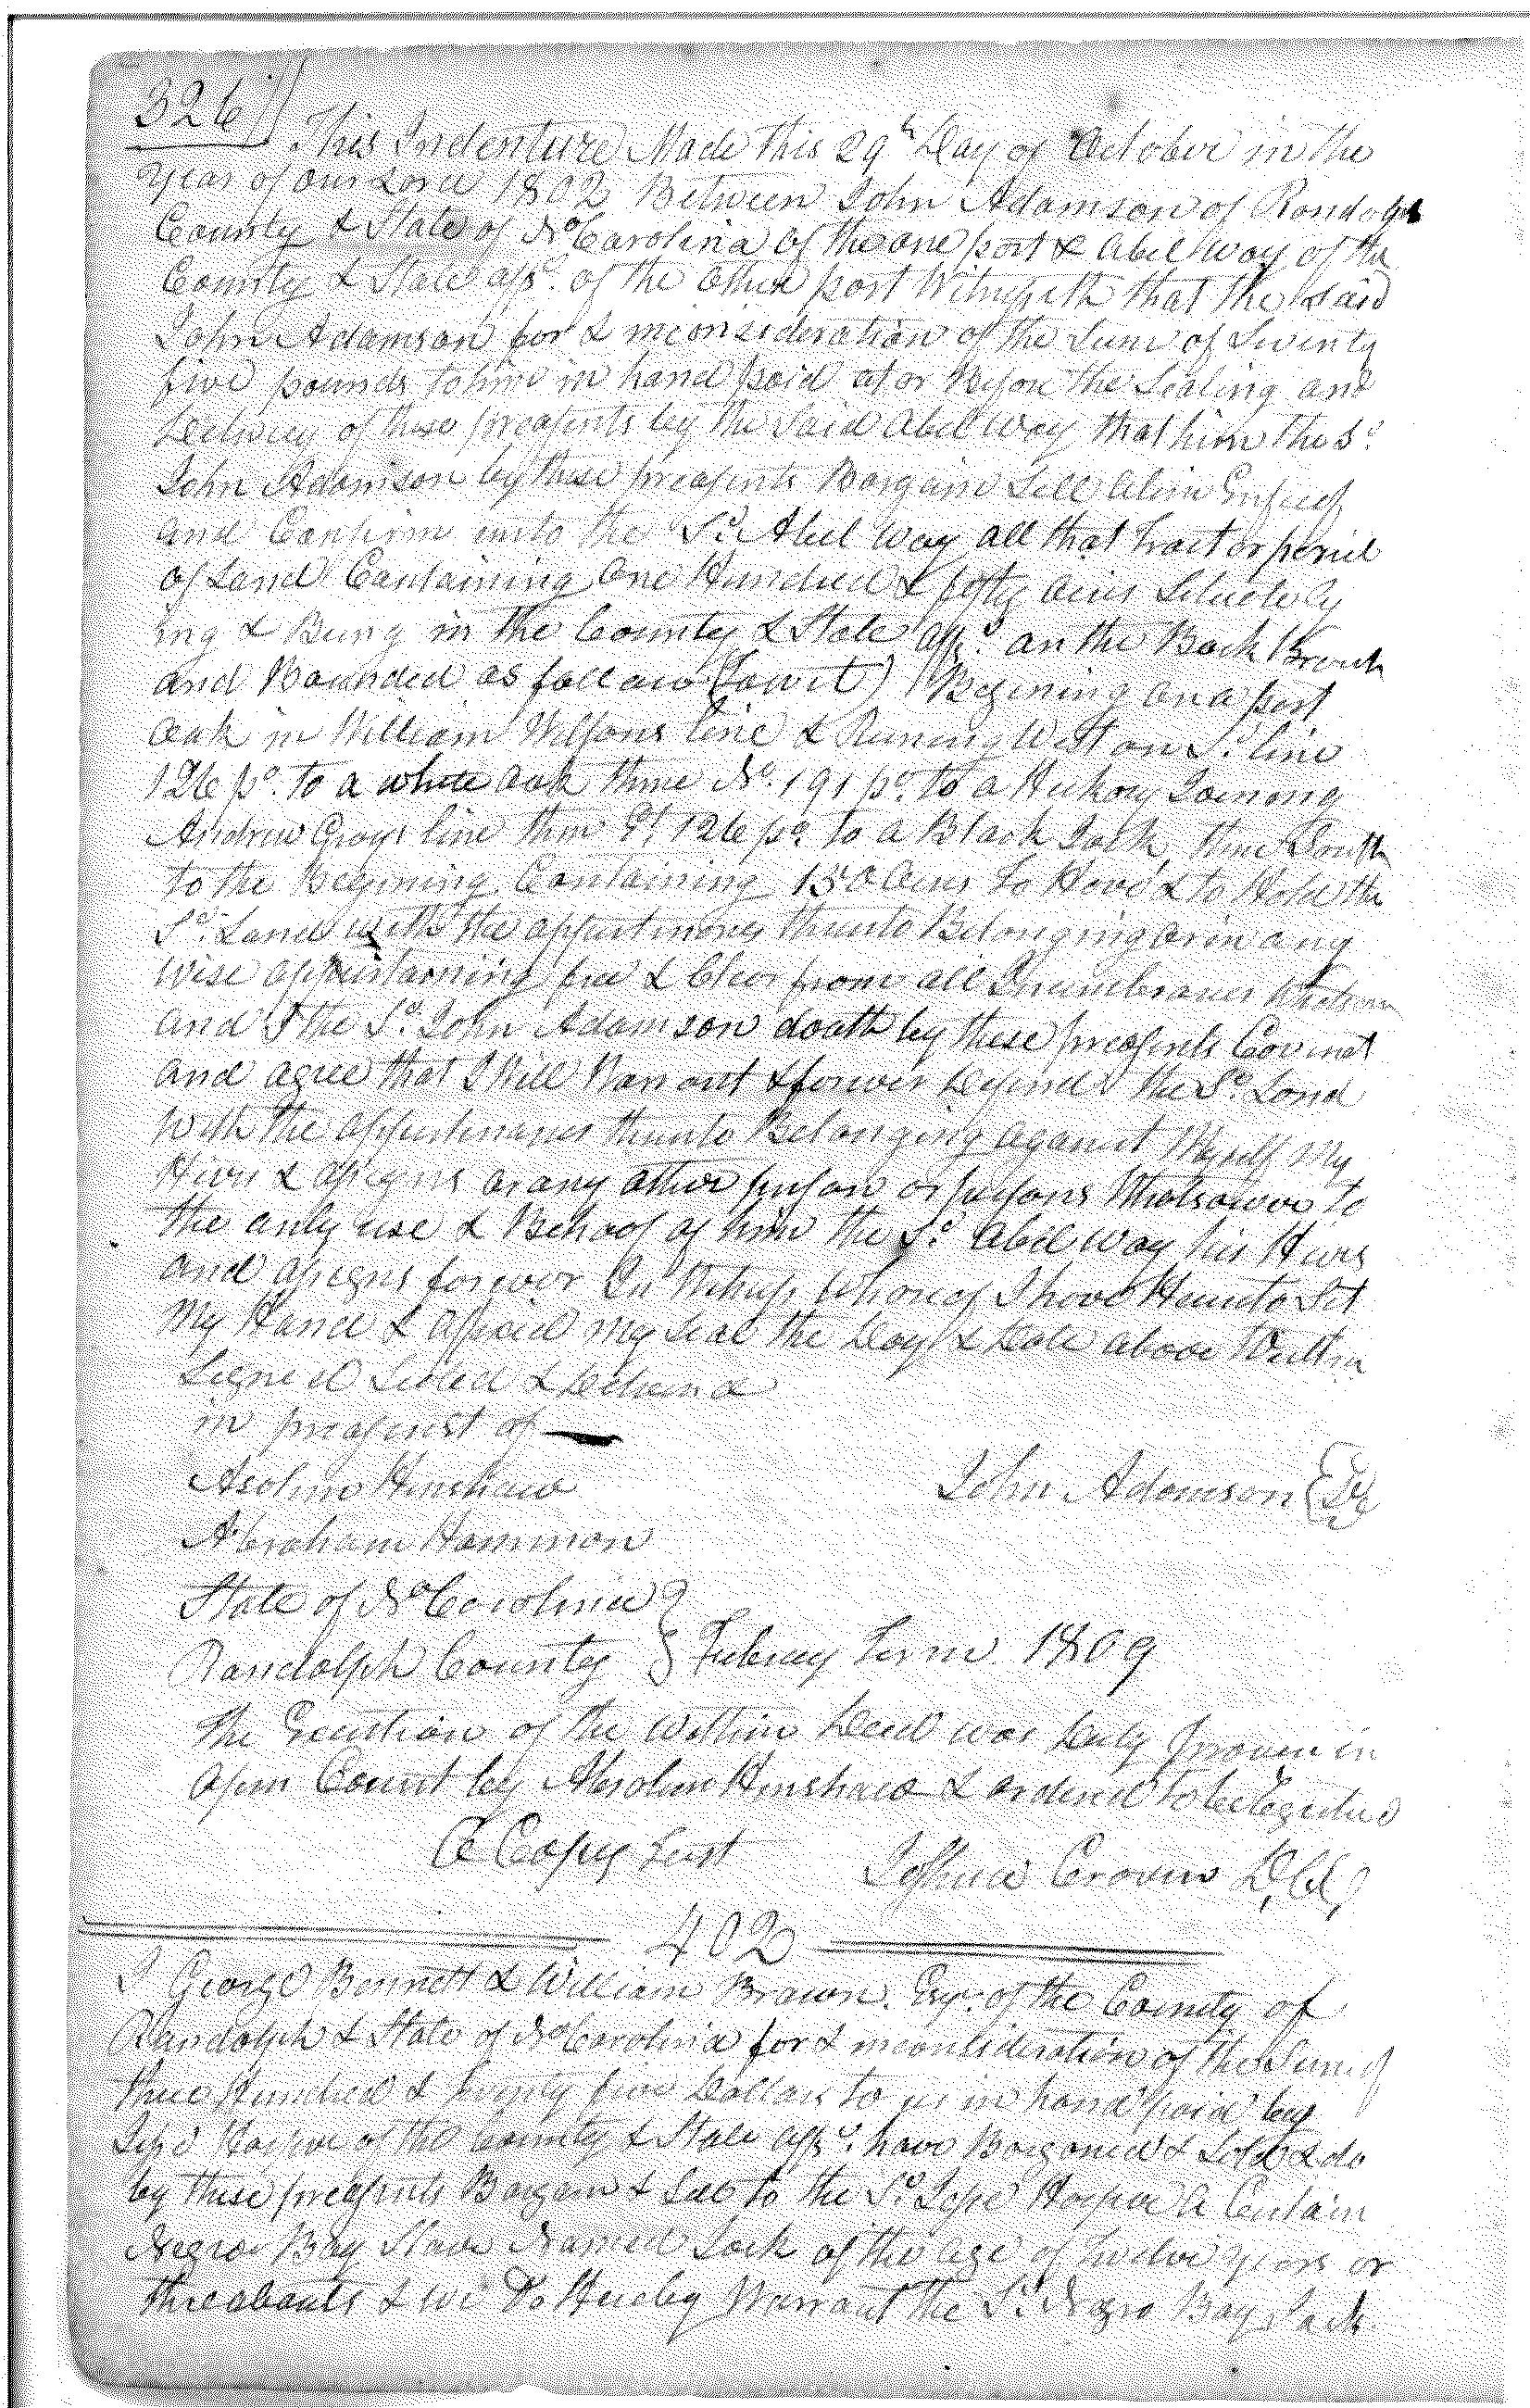 326
This Indenture Made this 29th Day of October in the
year of our Lord 1802 Between John Adamson of Randolph
County & State of No Carolina of the one part & Abel Way of the
County & State afsd. of the other part Witnesseth that the said
John Adamson for & inconsideration of the Sum of Seventy
five pounds to him in hand paid at or before the Sealing and
Delivery of these preasents by the Said Abel Way that him the Sd
John Adamson by these preasents Bargain Sell Alien Enfeof
and Confirm unto the Sd. Abel Way all that tract or parcel
of Land Containing One Hundred & fifty acres Lying
ing & Being in the County & State afsd. on the Back Branch
and Bounded as follow (Towit) Begining on a post
oak in William Wilsons line & Runing West on Sd. line
126 po. to a white oak thence No. 191 po. to a Hickory Joinong
Andrew Grays line then Et. 126 po. to a Black Jack, thence South
to the Begining Containing 150 Acres To Have & to Hold the
Sd. Land with the appurtinances thereunto Belonging or in any
wise appurtaining free & Clear from all Incumbrances Whatsoever
and I the Sd. John Adamson doath by these preasents Covinat
and agree that I Will Warrant & forever Defend the Sd. Land
With the appurtinances thereunto Belonging against Myself My
Heirs & assigns or any other person or persons Whatsoever to
the only use & Behoof of him the Sd. Abel Way his Heirs
and assigns forever In Witness whereof I have Hereunto Set
My Hand & Affixed my Seal the Day & Date above Written
Signed Sealed & Delivered
in preasenst of
Absolum Hinshaw
John Adamson {Seal}
Abraham Hammon
State of No Carolina }
Randolph County } Febuary Term 1809
The Execution of the within Deed was Duly proven in
open Court by Absolum Hinshaw & ordered to be Registered
A Copy Test Joshua Craven D,Clk,
402
I George Bennett & William Brown. Esqr. of the County of
Randolph & State of No Carolina for & inconsideration of the Sum of
three Hundred & twenty five Dollars to us in hand paid by
Jesse Harper of the County & State afsd. have Bargained & Sold & do
by these preasents Bargain & Sell to the Sd. Jesse Harper A Certain
Negro Boy Slave Named Jack of the age of twelve years or
thereabouts & we Do Hereby Warrant the Sd. Negro Boy Jack